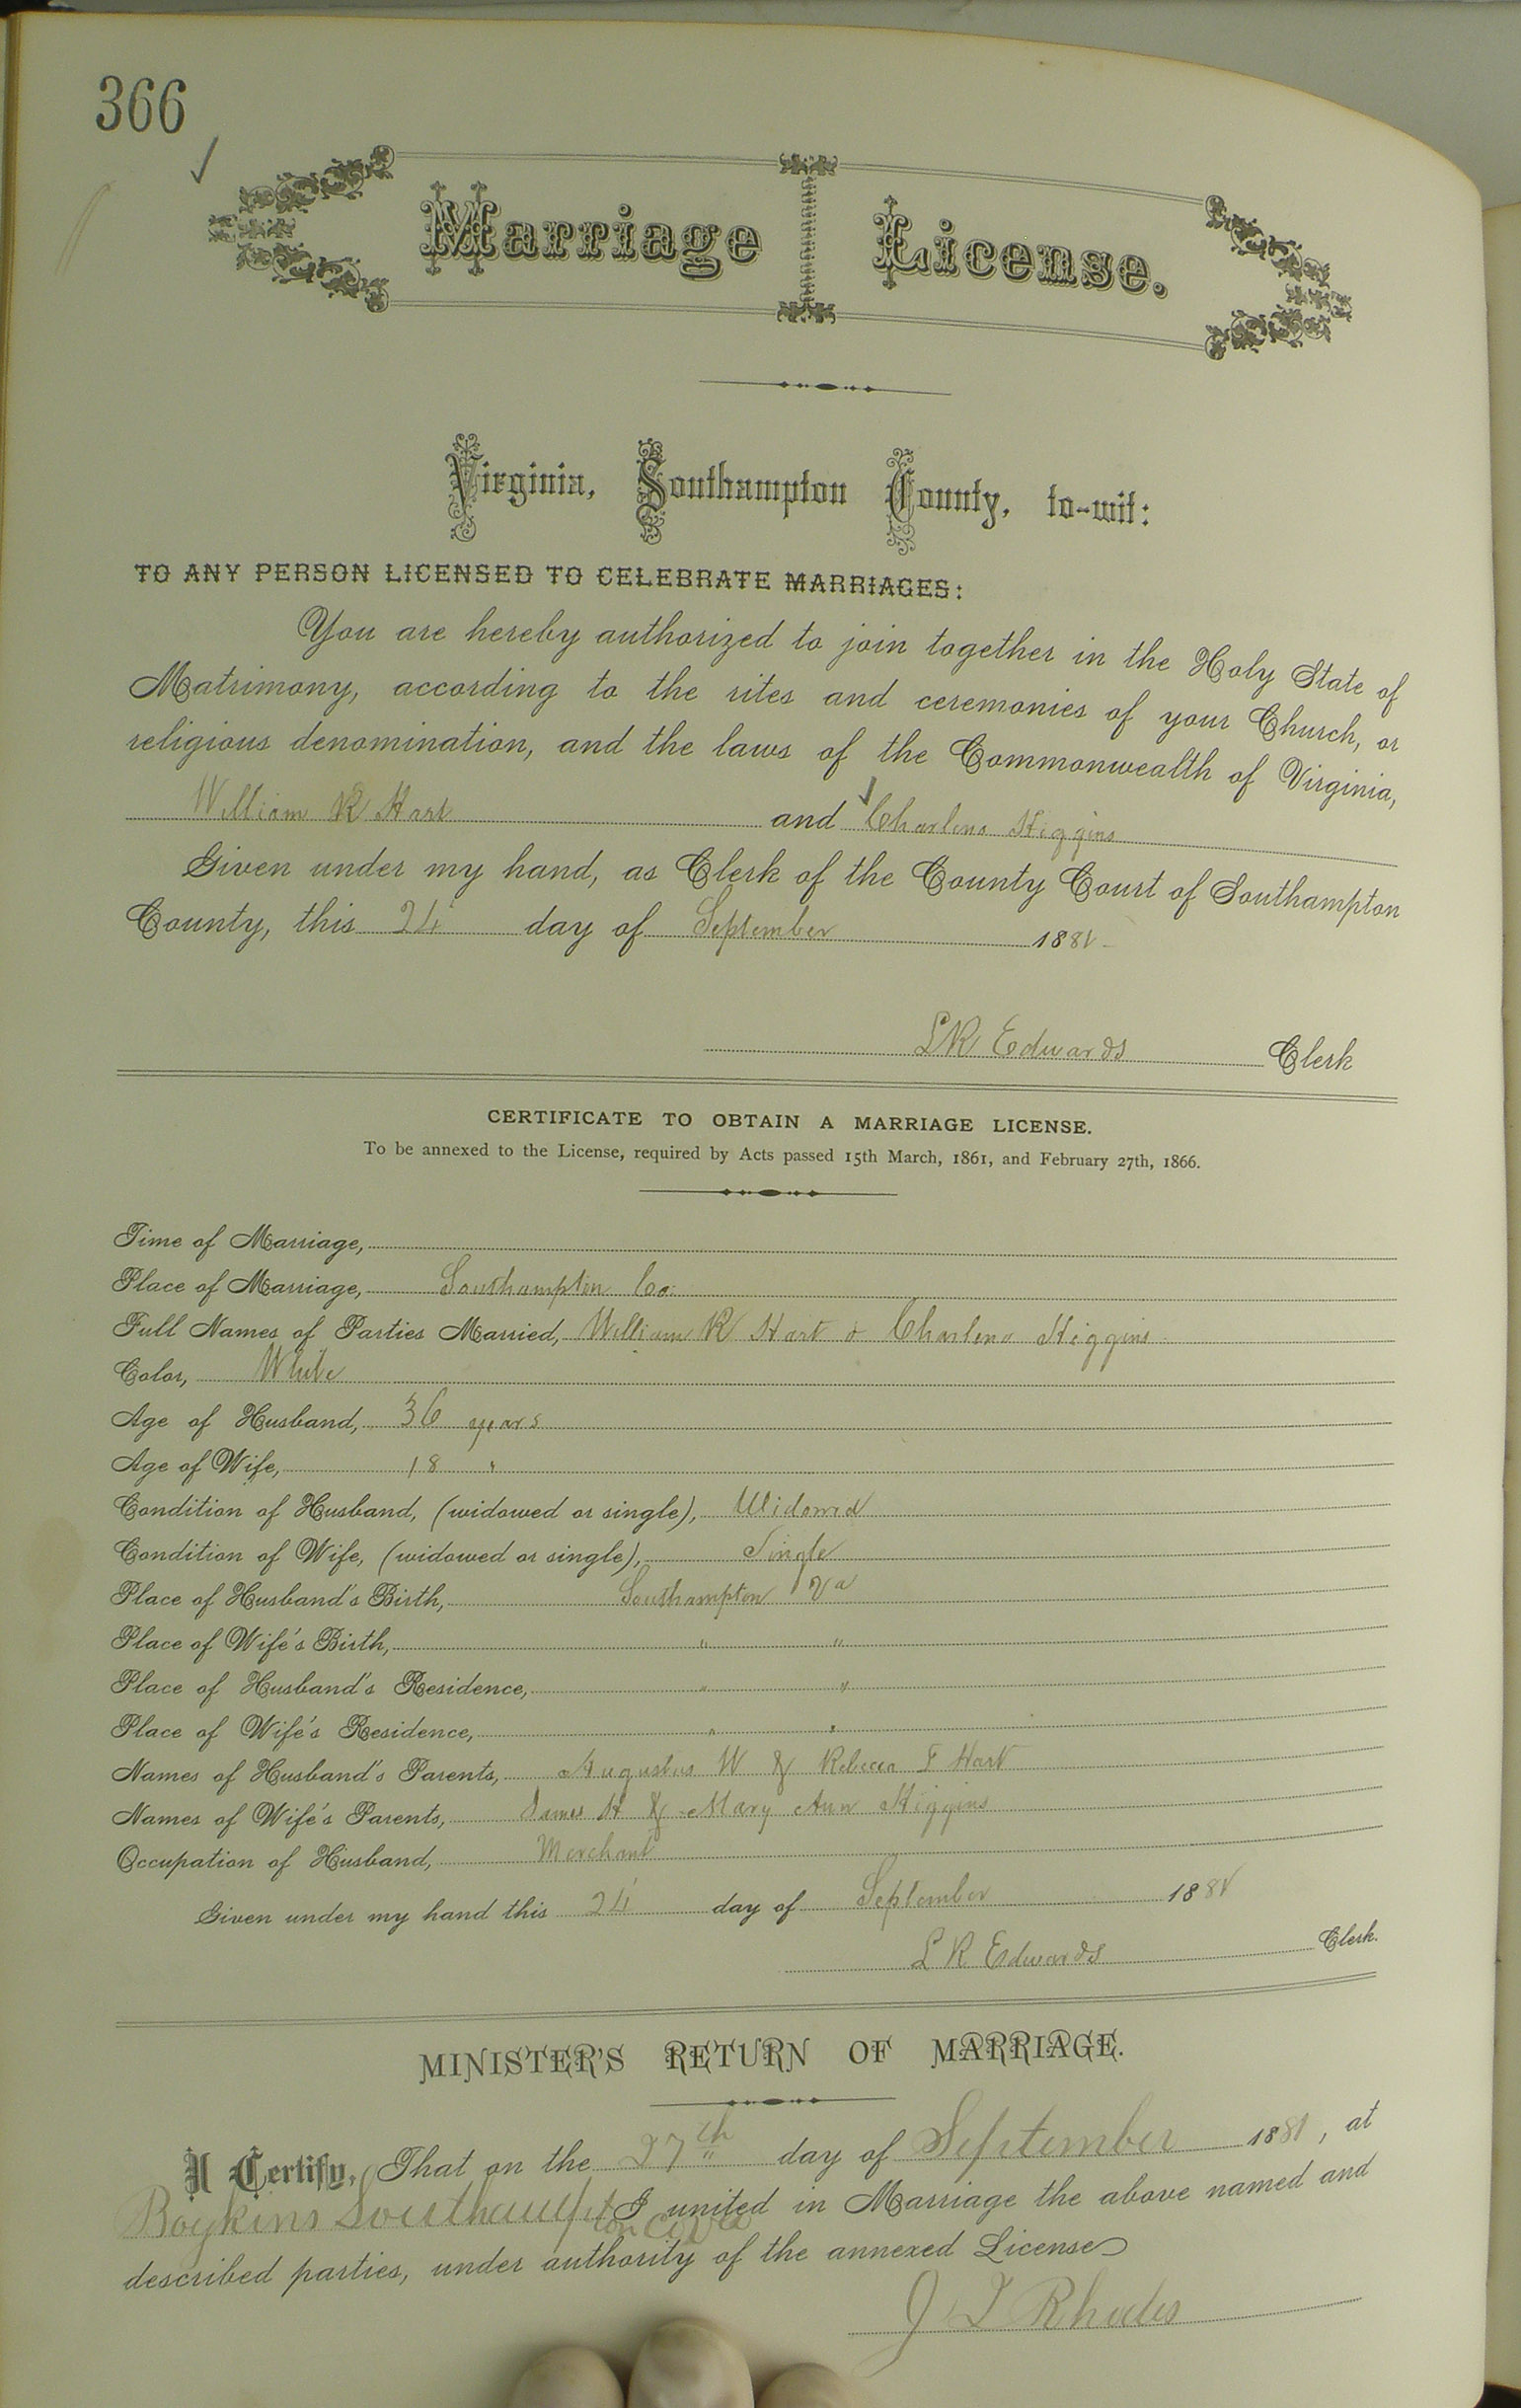 366
Marriage License.
Virginia, Southampton County, to-wit:
TO ANY PERSON LICENSED TO CELEBRATE MARRIAGES:
You are hereby authorized to join together in the Holy State of
Matrimony, according to the rites and ceremonies of your Church, or
religious denomination, and the laws of the Commonwealth of Virginia,
William R Hart and Charlena Higgins
Given under my hand, as Clerk of the County Court of Southampton
County, this 24 day of September 1881
L R Edwards Clerk
CERTIFICATE TO OBTAIN A MARRIAGE LICENSE.
To be annexed to the License, required by Acts passed 15th March, 1861, and February 27th, 1866.
Time of Marriage,
Place of Marriage, Southampton Co.
Full Names of Parties Married, William R Hart & Charlena Higgins
Color, White
Age of Husband, 36 years
Age of Wife, 18 "
Condition of Husband, (widowed or single), Widowed
Condition of Wife, (widowed or single), Single
Place of Husband's Birth, Southampton Va
Place of Wife's Birth, " "
Place of Husband's Residence, " "
Place of Wife's Residence, " "
Names of Husband's Parents, Augustus W & Rebecca T Hart
Names of Wife's Parents, James H & Mary Ann Higgins
Occupation of Husband, Merchant
Given under my hand this 24 day of September 1881
L R Edwards Clerk.
MINISTER'S RETURN OF MARRIAGE.
I Certify, That on the 27th day of September 1881, at
Boykins Southampton Co Va I united in Marriage the above named and
described parties, under authority of the annexed License
J T Rhodes